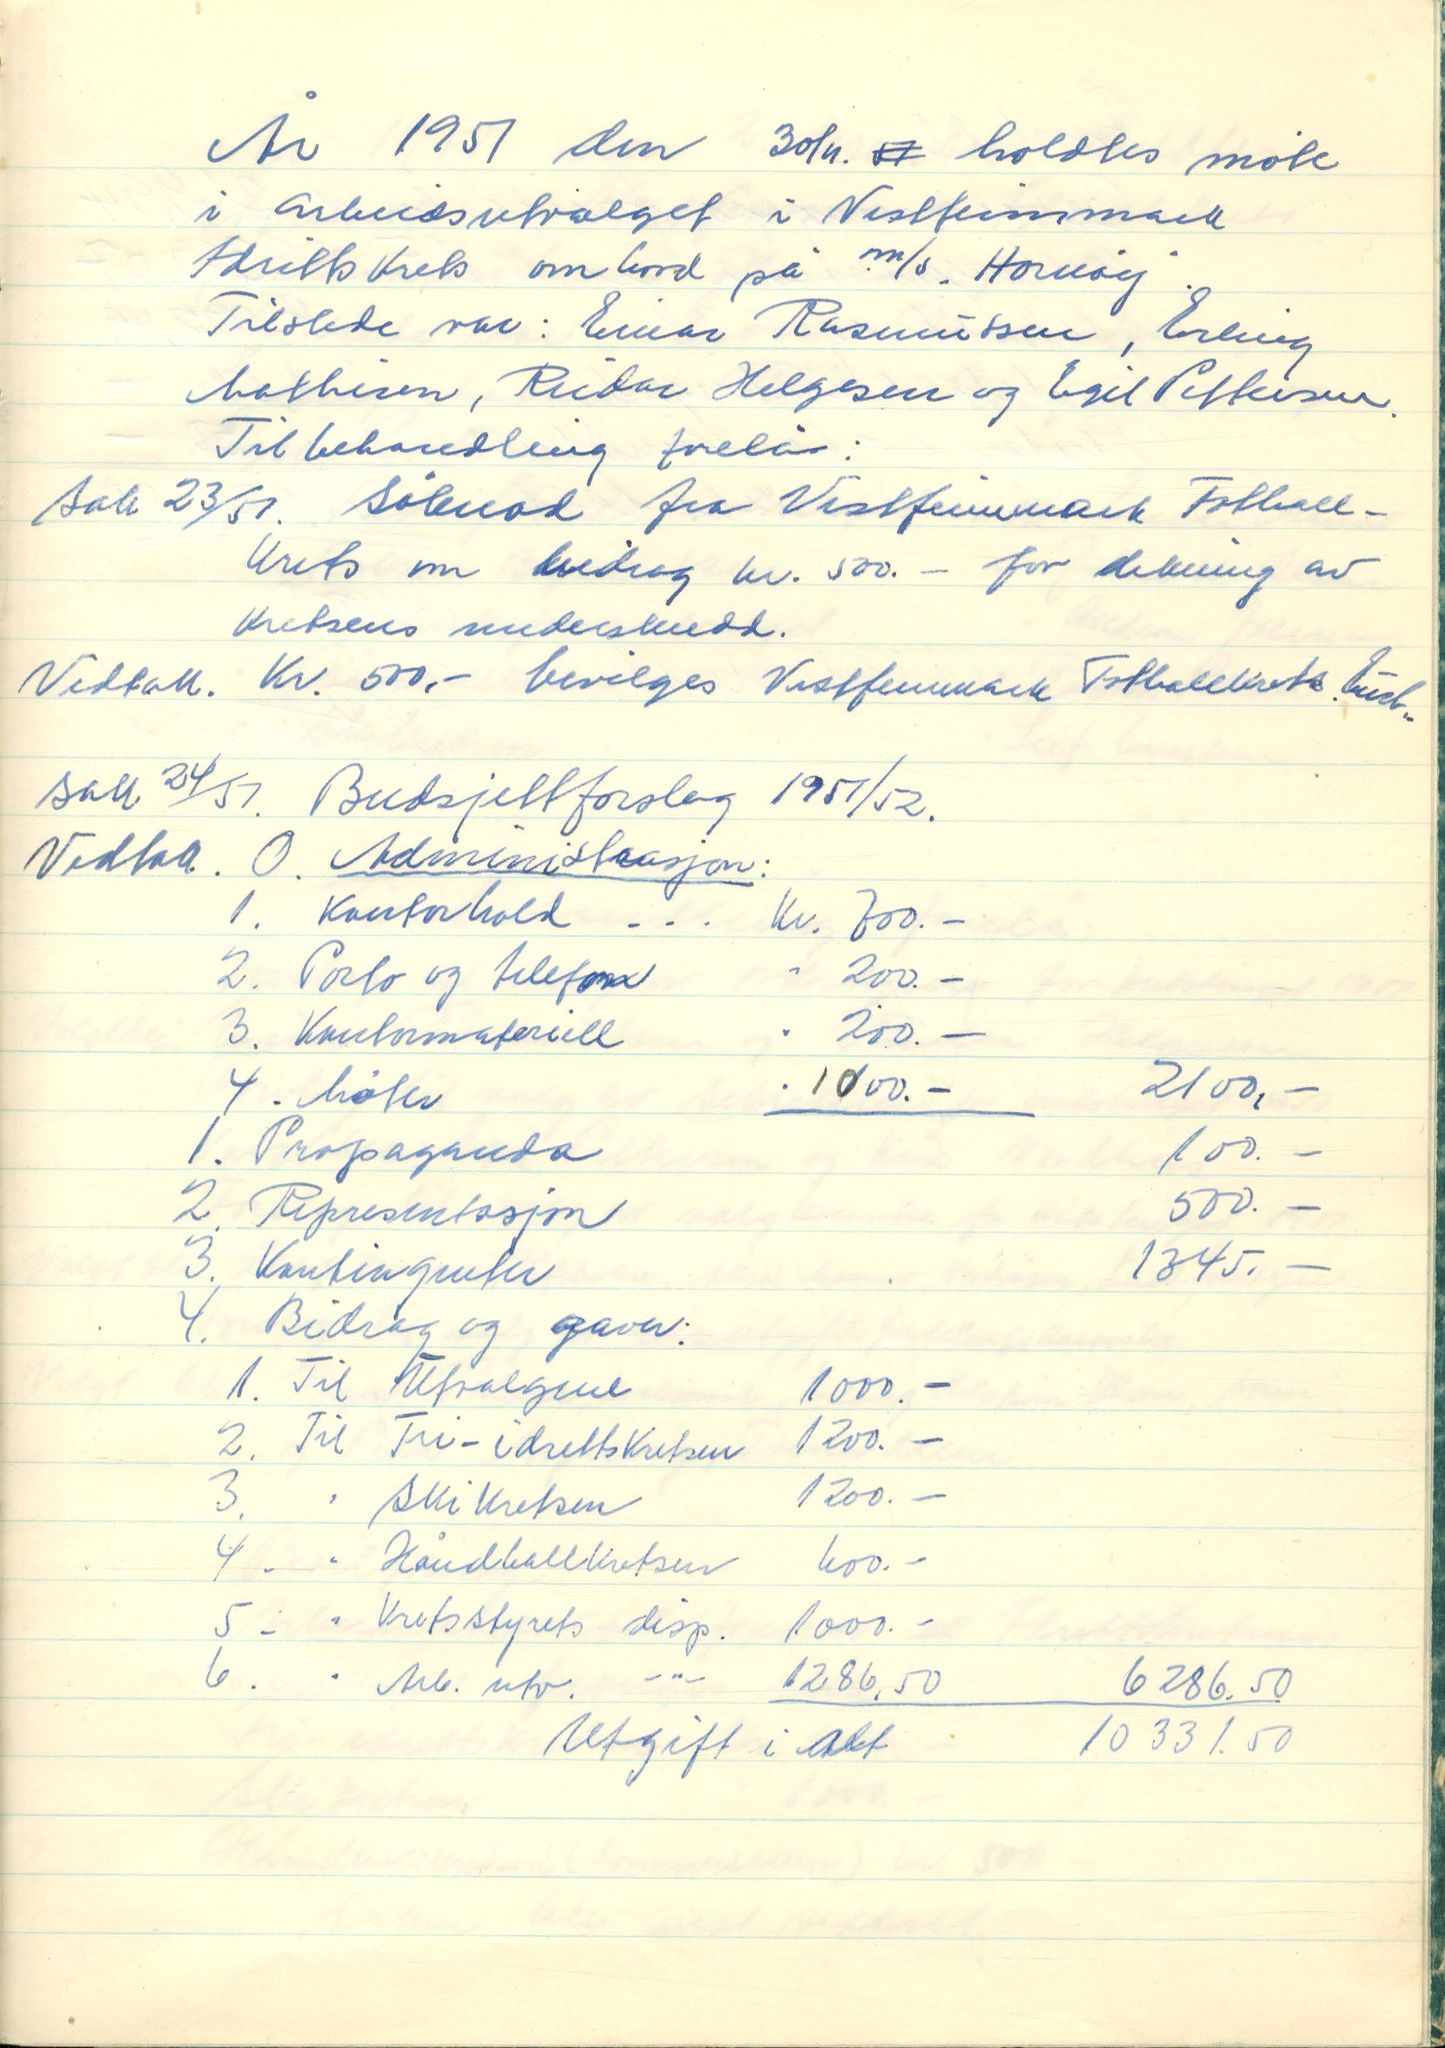 År 1951 den 30/11. holdtes møte
i arbeidsutvalget i Vestfinnmark
Idrettskrets ombord på m/s. Hornøy.
Tilstede var: Einar Rasmussen, Erling
Mathisen, Reidar Helgesen og Egil Pettersen.
Til behandling forelå:
Sak 23/51. Søknad fra Vestfinnmark Fotball-
krets om bidrag kr. 500.- for dekning av
kretsens underskudd.
Vedtak. Kr. 500,- bevilges Vestfinnmark Fotballkrets. Enst.
Sak 24/51. Budsjettforslag 1951/52.
Vedtak. 0. Administrasjon:
1. Kontorhold ... Kr. 700.-
2. Porto og telefon " 200.-
3. Kontormateriell " 200.-
4. Møter " 1000.- 2100,-
1. Propaganda 100.-
2. Representasjon 500.-
3. Kontingenter 1345.-
4. Bidrag og gaver:
1. Til Utvalgene 1000.-
2. Til Fri-idrettskretsen 1200.-
3. " Skikretsen 1200.-
4. " Håndballkretsen 600.-
5. " Kretsstyrets disp. 1000.-
6. " Arb. utv. -"- 1286,50 6286.50
Utgift i alt 10331.50